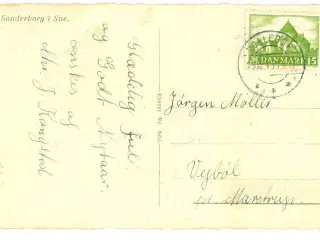 Sønderborg i Sne.
Glædelig Jul
og Godt Nytaar
ønskes af
J. Kongsted.
Eneret
DANMARK 15
Jørgen Møller
Vejbøl
pr. Marstrup.